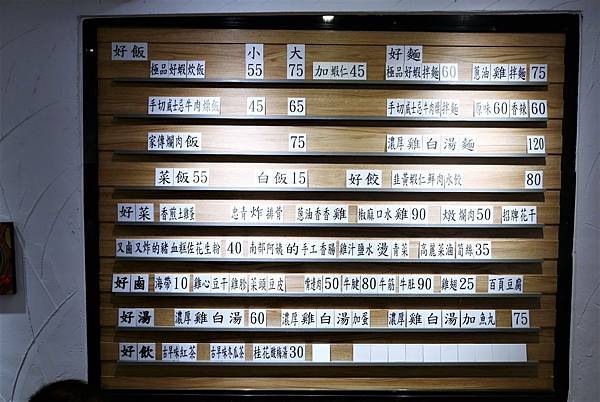 好飯 小 大 好麵
極品好蝦炊飯 55 75 加蝦仁45 極品好蝦拌麵60 蔥油雞拌麵 75
手切威士忌牛肉燥飯 45 65 手切威士忌牛肉燥拌麵 原味60香辣60
家傳爌肉飯 75 濃厚雞白湯麵 120
菜飯55 白飯15 好餃 韭黃蝦仁鮮肉水餃 80
好菜 香煎土雞蛋 忠青炸排骨 蔥油香香雞 椒麻口水雞90 燉爌肉50 招牌花干
又鹵又炸的豬血糕佐花生粉 40 南部阿嬤的手工香腸 雞汁鹽水燙青菜 高麗菜滷筍絲35
好鹵 海帶10 雞心豆干雞胗菜頭豆皮 連肉50牛腱80牛筋牛肚90 雞翅25 百頁豆腐
好湯 濃厚雞白湯60 濃厚雞白湯加蛋 濃厚雞白湯加魚丸 75
好飲 古早味紅茶 古早味冬瓜茶 桂花酸梅湯30